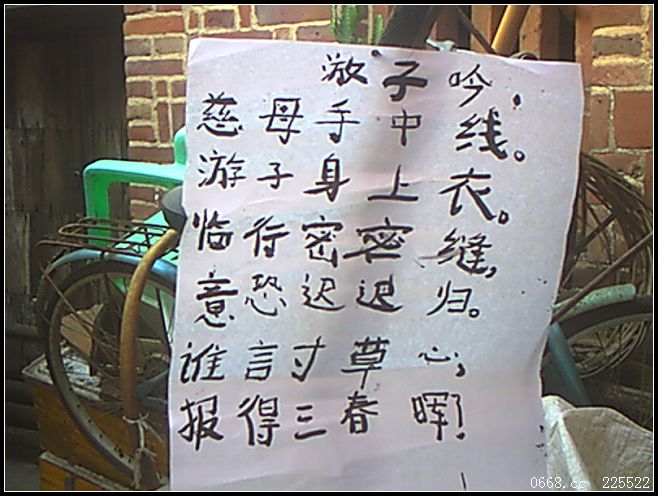 子吟:
慈母手中线。
游子身上衣。
临行密密缝,
意恐迟迟归。
谁言寸草心,
报得三春晖!
0668.cc 225522